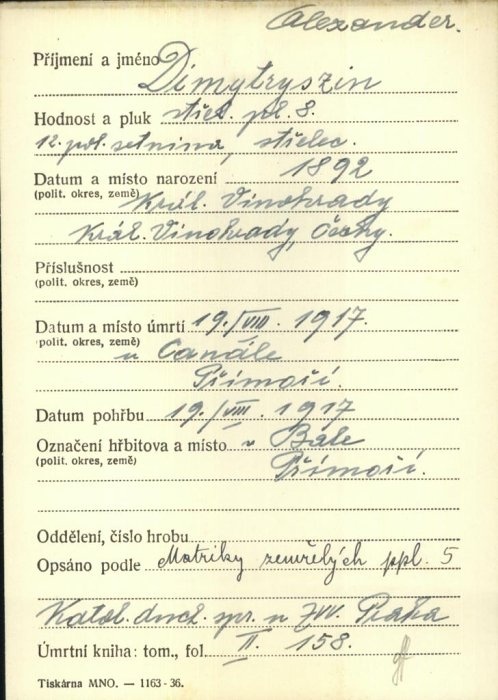 Alexander.
Příjmení a jméno Dimytryszin
Hodnost a pluk střel. pl. 8.
12. pol. setnina, střelec.
Datum a místo narození 1892
(polit. okres, země) Král. Vinohrady
Král. Vinohrady, Čechy.
Příslušnost
(polit. okres, země)
Datum a místo úmrtí 19./VIII. 1917.
(polit. okres, země) u Canále
Přímoří.
Datum pohřbu 19./VIII. 1917
Označení hřbitova a místo v Bate
(polit. okres, země) Přímoří.
Oddělení, číslo hrobu
Opsáno podle Matriky zemřelých ppl. 5
Katol. duch. spr. u ZVV. Praha
Úmrtní kniha: tom., fol. II. 158.
Tiskárna MNO. — 1163-36.